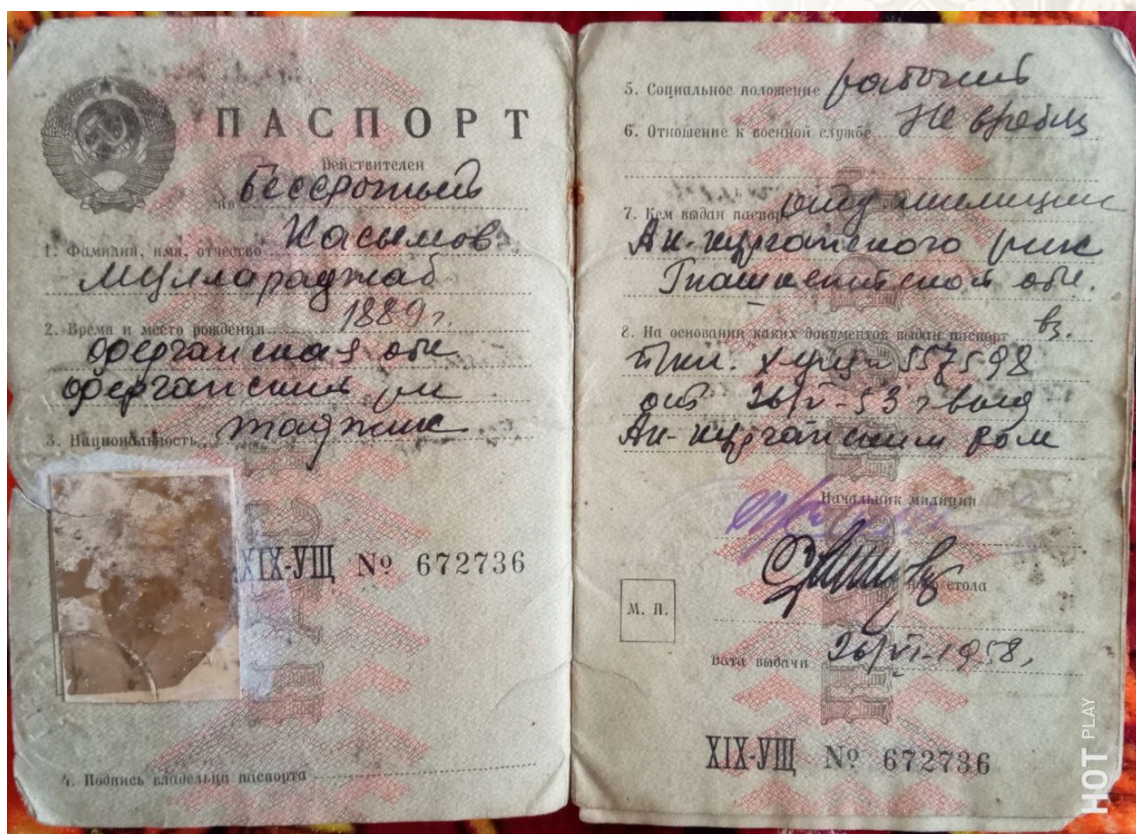 ПАСПОРТ
Действителен
по бессрочный
1. Фамилия, имя, отчество Касымов
Муллараджаб
2. Время и место рождения 1889 г.
Ферганская обл
Ферганский
3. Национальность таджик
XIX-УЩ № 672736
4. Подпись владельца паспорта
5. Социальное положение рабочий
6. Отношение к военной службе
7. Кем выдан паспорт милиции
Ак-курганского
Ташкентской обл.
8. На основании каких документов выдан паспорт вз.
557598
от 26/V-53 г выд
Ак-курганским
Начальник милиции
стола
М. П.
Дата выдачи 26/VI-1958,
XIX-УЩ № 672736
HOT PLAY